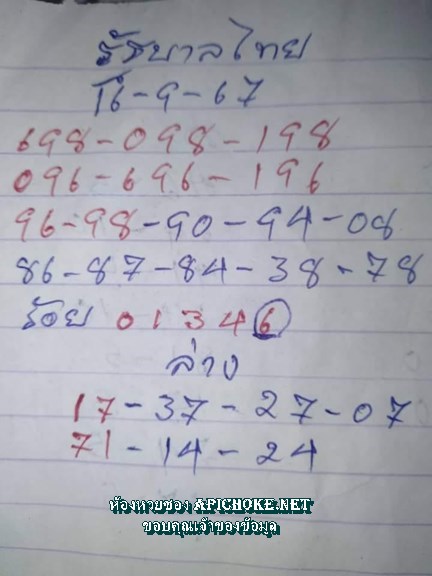 รัฐบาลไทย
16-9-67
698-098-198
096-696-196
96-98-90-94-08
86-87-84-38-78
ร้อย 0 1 3 4 6
ล่าง
17-37-27-07
71-14-24
ห้องหวยซอง APICHOKE.NET
ขอบคุณเจ้าของข้อมูล